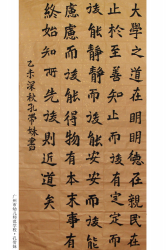 大學之道在明明德在親民在
止於至善知止而後有定定而
後能靜靜而後能安安而後能
慮慮而後能得物有本末事有
終始知所先後則近道矣
乙未深秋帶妹書